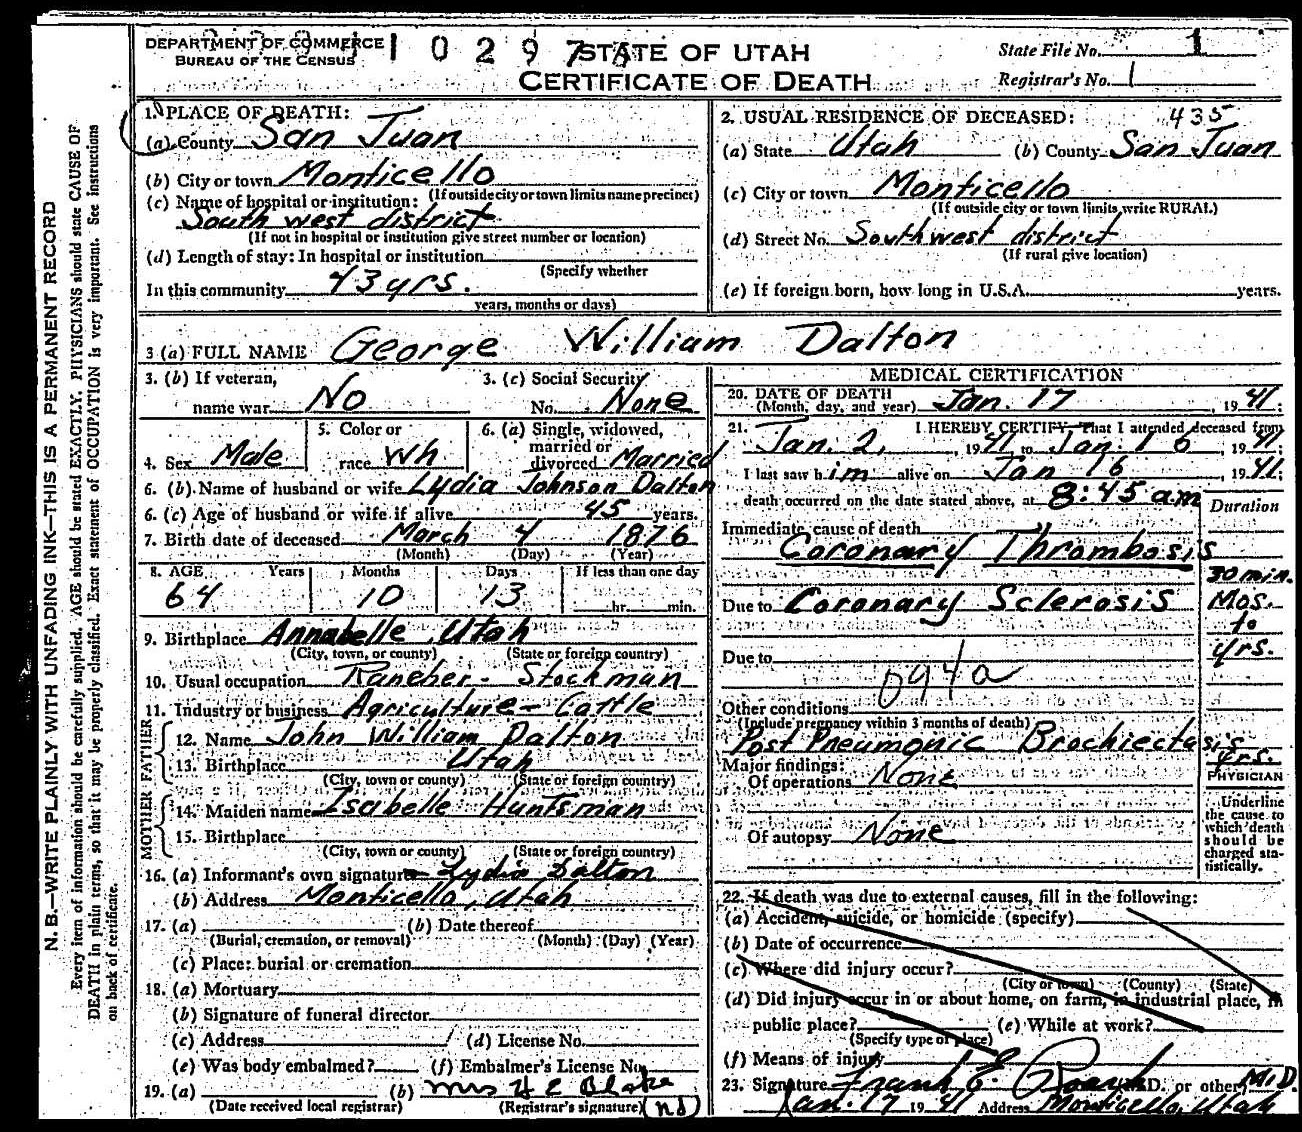 N. B.—WRITE PLAINLY WITH UNFADING INK—THIS IS A PERMANENT RECORD
Every item of information should be carefully supplied. AGE should be stated EXACTLY. PHYSICIANS should state CAUSE OF
DEATH in plain terms, so that it may be properly classified. Exact statement of OCCUPATION is very important. See instructions
on back of certificate.
DEPARTMENT OF COMMERCE
BUREAU OF THE CENSUS
1 0 2 9 7
STATE OF UTAH
CERTIFICATE OF DEATH
State File No. 1
Registrar's No. 1
1. PLACE OF DEATH:
(a) County San Juan
(b) City or town Monticello
(If outside city or town limits name precinct)
(c) Name of hospital or institution:
South west district
(If not in hospital or institution give street number or location)
(d) Length of stay: In hospital or institution
(Specify whether
In this community 43 yrs.
years, months or days)
2. USUAL RESIDENCE OF DECEASED: 435
(a) State Utah (b) County San Juan
(c) City or town Monticello
(If outside city or town limits write RURAL)
(d) Street No. Southwest district
(If rural give location)
(e) If foreign born, how long in U.S.A. years.
3 (a) FULL NAME George William Dalton
3. (b) If veteran,
name war No
3. (c) Social Security
No. None
4. Sex Male
5. Color or
race Wh
6. (a) Single, widowed,
married or
divorced Married
6. (b) Name of husband or wife Lydia Johnson Dalton
6. (c) Age of husband or wife if alive 45 years.
7. Birth date of deceased March 4 1876
(Month) (Day) (Year)
8. AGE Years Months Days If less than one day
64 10 13 hr. min.
9. Birthplace Annabelle, Utah
(City, town, or county) (State or foreign country)
10. Usual occupation Rancher - Stockman
11. Industry or business Agriculture - Cattle
FATHER
12. Name John William Dalton
13. Birthplace Utah
(City, town or county) (State or foreign country)
MOTHER
14. Maiden name Isabelle Huntsman
15. Birthplace
(City, town or county) (State or foreign country)
16. (a) Informant's own signature Lydia Dalton
(b) Address Monticello, Utah
17. (a) (b) Date thereof
(Burial, cremation, or removal) (Month) (Day) (Year)
(c) Place: burial or cremation
18. (a) Mortuary
(b) Signature of funeral director
(c) Address (d) License No.
(e) Was body embalmed? (f) Embalmer's License No.
19. (a) (b) Mrs H E Blake
(Date received local registrar) (Registrar's signature) (nd)
MEDICAL CERTIFICATION
20. DATE OF DEATH
(Month, day, and year) Jan. 17, 1941:
21. I HEREBY CERTIFY That I attended deceased from
Jan. 2, 1941 to Jan. 16, 1941.
I last saw him alive on Jan 16, 1941.
death occurred on the date stated above, at 8:45 am
Duration
Immediate cause of death
Coronary Thrombosis
30 min.
Due to Coronary Sclerosis Mos.
to
yrs.
Due to
094a
Other conditions
(Include pregnancy within 3 months of death)
Post Pneumonic Brochiectasis
yrs.
Major findings:
Of operations None
Of autopsy None
PHYSICIAN
Underline
the cause to
which death
should be
charged sta-
tistically.
22. If death was due to external causes, fill in the following:
(a) Accident, suicide, or homicide (specify)
(b) Date of occurrence
(c) Where did injury occur?
(City or town) (County) (State)
(d) Did injury occur in or about home, on farm, in industrial place, in
public place? (e) While at work?
(Specify type of place)
(f) Means of injury
23. Signature Frank E. (M.D. or other) M.D.
Jan. 17 1941 Address Monticello, Utah